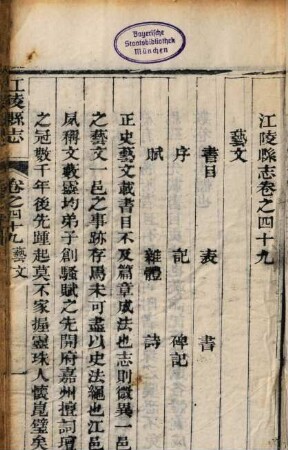 Bayerische
Staatsbibliothek
München
江陵縣志卷之四十九
藝文
書目 表 書
序 記 碑記
賦 雜體 詩
正史藝文載書目不及篇章成法也志則微異一邑
之藝文一邑之事跡存焉未可盡以史法繩也江邑
夙稱文藪靈均弟子創騷賦之先開府嘉州擅詞壇
之冠數千年後先踵起莫不家握靈珠人懷崑璧矣
江陵縣志 卷之四十九 藝文